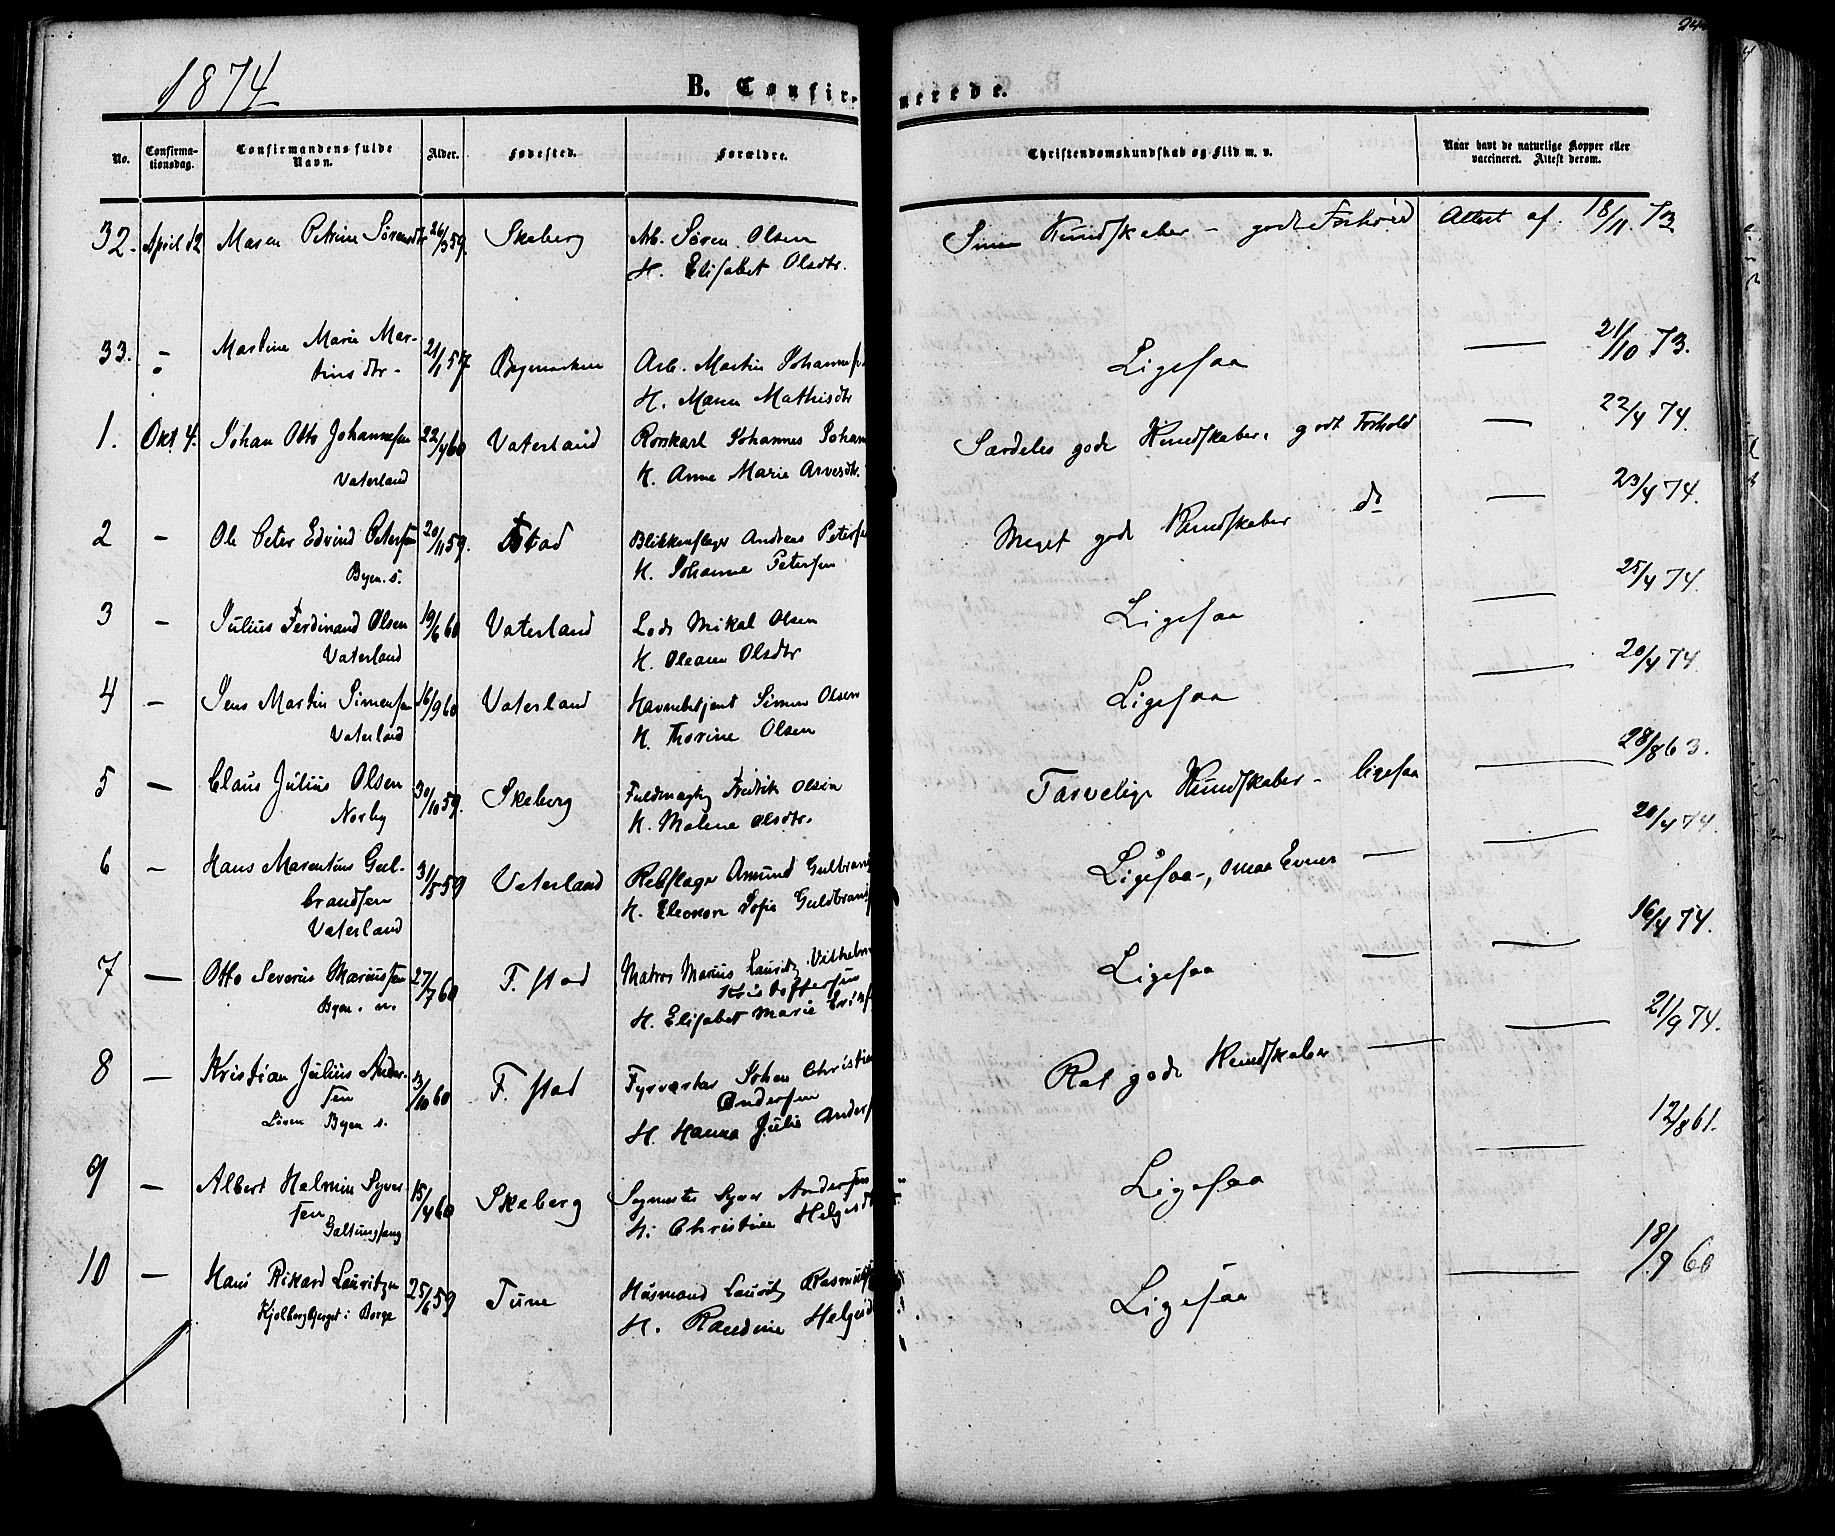 1874
B. Confirmerede.
No.
Confirmationsdag.
Confirmandens fulde Navn.
Alder.
Fødested.
Forældre.
Christendomskundskab og Flid m. v.
Naar havt de naturlige Kopper eller vaccineret. Attest derom.
32. April 12 Maren Petrine Sørensdtr 26/3 59. Skeberg Arb. Søren Olsen kundskaber - godt Forhold Attest af. 18/11. 73
H. Elisabet Olsdtr.
33. - Martine Marie Mar- 21/1 57 Bymarken Arb. Martin Johannes Ligesaa — 21/10 73.
tinsdtr - H. Maren Mathisdtr
1. Okt 4. Johan Otto Johannesen 22/4 60 Vaterland Rorskarl Johannes Johan Særdeles gode Kundskaber, godt Forhold — 22/4 74.
Vaterland H. Anne Marie Arvesdtr.
2 - Ole Peter Edvind Petersen 20/11 59. Fstad Blikkenslager Andreas Peterse Meget gode Kundskaber do — 23/4 74.
Byen. s. H. Johanne Petersen
3 - Julius Ferdinand Olsen 19/6 60 Vaterland Lods Mikal Olsen Ligesaa — 25/4 74.
Vaterland H. Oleane Olsdtr
4 - Jens Martin Simensen 16/9 60 Vaterland Havnebetjent Simen Olsen Ligesaa — 20/4 74
Vaterland H. Thorine Olsen
5 - Claus Julius Olsen 30/10 59. Skeberg Fuldmægtig Fredrik Olsen Tarvelige Kundskaber - ligesaa — 28/8 63.
Norby H. Malene Olsdtr.
6 - Hans Marentius Gul- 31/5 59 Vaterland Rebslager Amund Gulbrands Ligesaa -, smaa Evner — — 20/4 74.
brandsen H. Eleonore Sofie Guldbrands
Vaterland
7 - Otto Severin Mariussen 27/7 60 F. stad Matros Marius Lauritz Vilhelm Ligesaa — — 16/4 74.
Byen. n. Kristoffersen
H. Elisabet Marie
8 - Kristian Julius Ander- 13/10 60 F. stad Fyrværker Johan Christian Ret gode Kundskaber — — 21/9 74.
sen Andersen
Byen s. H. Hanna Julie Anders
9 - Albert Helmin Syver 15/4 60 Skeberg Syver Andersen Ligesaa — 12/8 61.
sen H. Christine Helgesdtr
10 - Hans Rikard Lauritzen 25/6 59 Tune Husmand Lauritz Rasmus Ligesaa — 18/9 60
Kjølbergbjerget i Borge H. Randine Helges